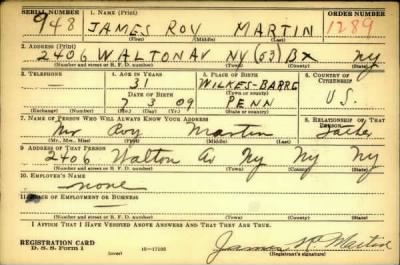 SERIAL NUMBER 1. NAME (Print) ORDER NUMBER
948 JAMES ROY MARTIN 1289
(First) (Middle) (Last)
2. ADDRESS (Print)
2406 WALTON AV NY (53) BX NY
(Number and street or R. F. D. number) (Town) (County) (State)
3. TELEPHONE 4. AGE IN YEARS 5. PLACE OF BIRTH 6. COUNTRY OF CITIZENSHIP
— 31 WILKES-BARRE
DATE OF BIRTH (Town or county)
7 3 09 PENN U.S.
(Exchange) (Number) (Mo.) (Day) (Yr.) (State or country)
7. NAME OF PERSON WHO WILL ALWAYS KNOW YOUR ADDRESS 8. RELATIONSHIP OF THAT PERSON
Mr Roy Martin Father
(Mr., Mrs., Miss) (First) (Middle) (Last)
9. ADDRESS OF THAT PERSON
2406 Walton Av Ny Ny Ny
(Number and street or R. F. D. number) (Town) (County) (State)
10. EMPLOYER'S NAME
none
11. PLACE OF EMPLOYMENT OR BUSINESS
(Number and street or R. F. D. number) (Town) (County) (State)
I AFFIRM THAT I HAVE VERIFIED ABOVE ANSWERS AND THAT THEY ARE TRUE.
REGISTRATION CARD
D. S. S. Form 1 (over) 16—17105 James R Martin
(Registrant's signature)